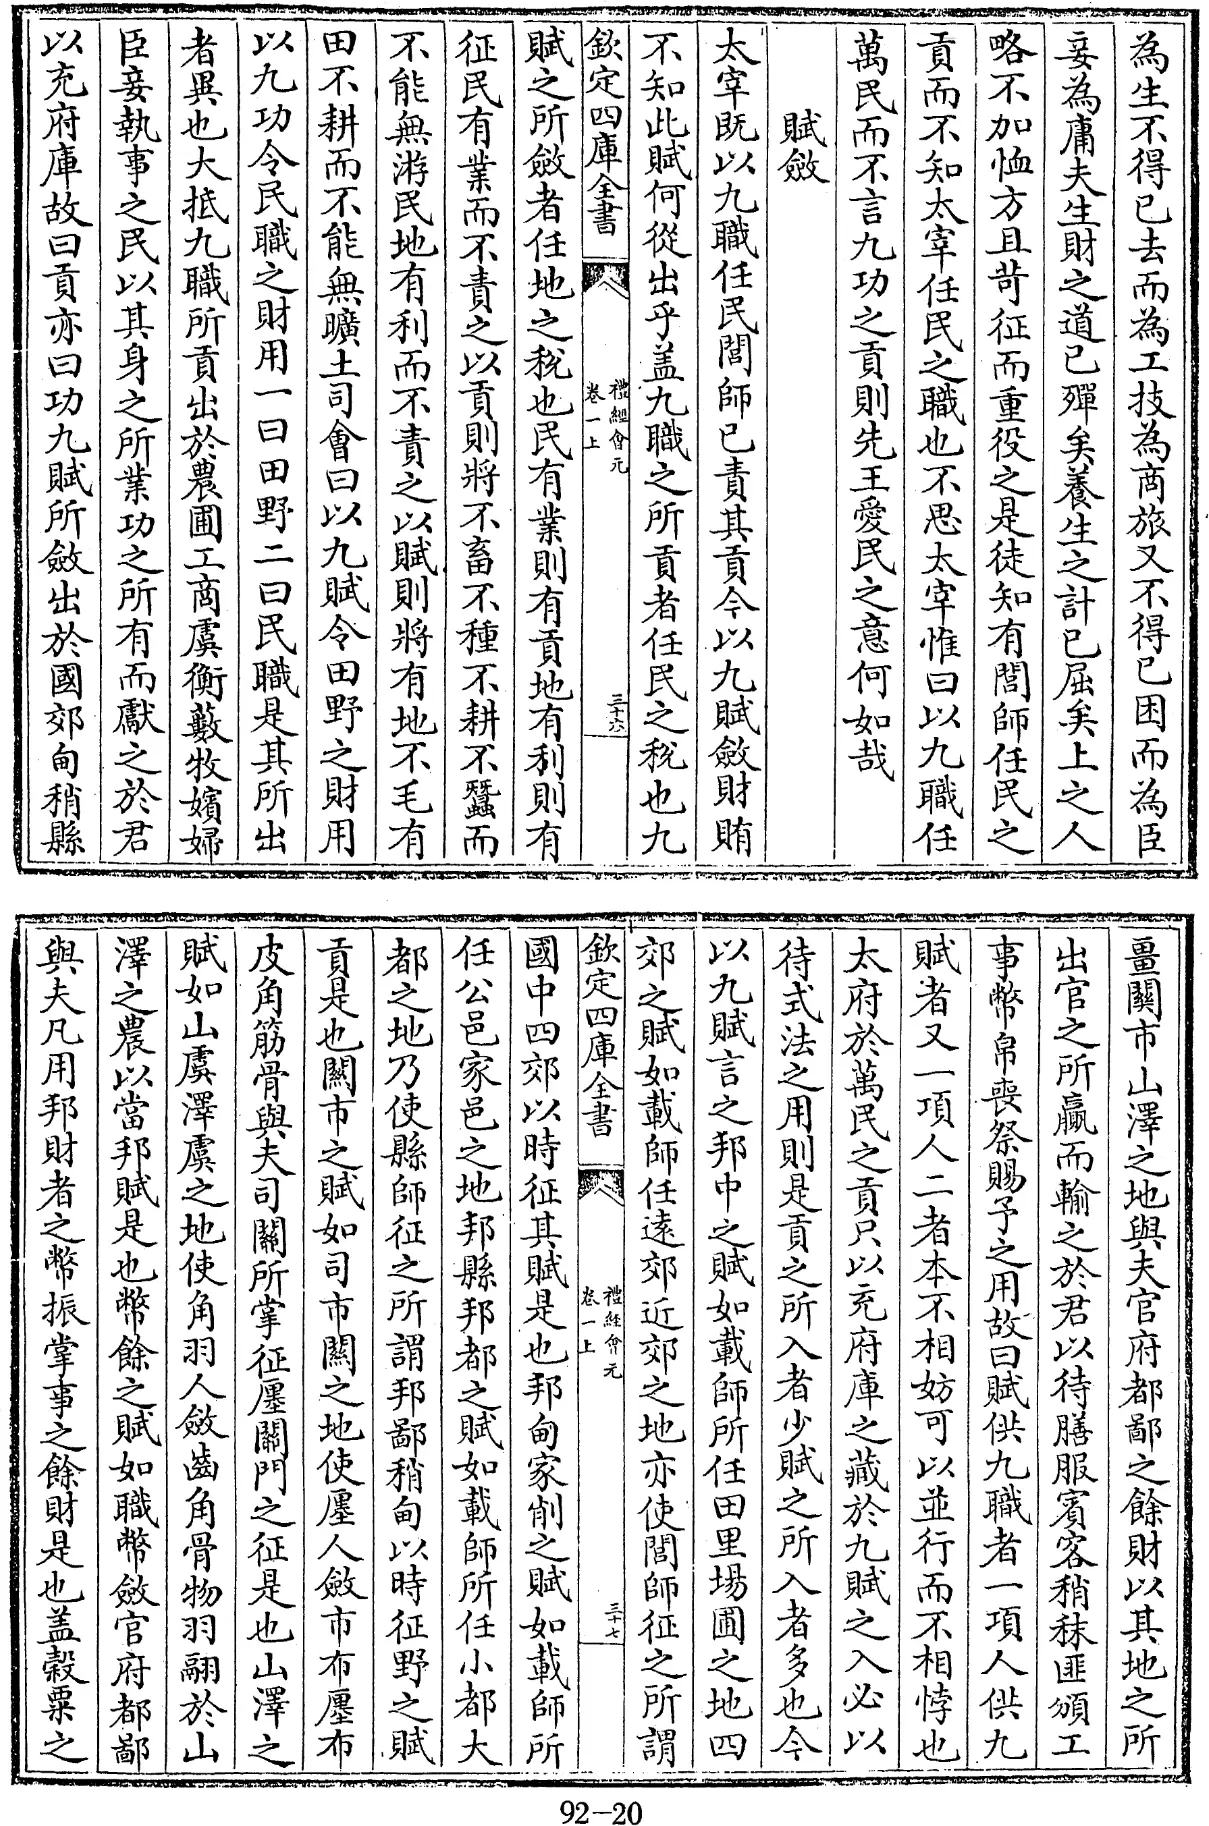 為生不得已去而為工技為商旅又不得已困而為臣
妾為庸夫生財之道已殫矣養生之計已屈矣上之人
略不加恤方且苛征而重役之是徒知有閭師任民之
貢而不知太宰任民之職也不思太宰惟曰以九職任
萬民而不言九功之貢則先王愛民之意何如哉
賦斂
太宰既以九職任民閭師已責其貢今以九賦斂財賄
不知此賦何從出乎盖九職之所貢者任民之稅也九
欽定四庫全書
禮經會元
卷一上
三十六
賦之所斂者任地之稅也民有業則有貢地有利則有
征民有業而不責之以貢則將不畜不種不耕不蠶而
不能無游民地有利而不責之以賦則將有地不毛有
田不耕而不能無曠土司會曰以九賦令田野之財用
以九功令民職之財用一曰田野二曰民職是其所出
者異也大抵九職所貢出於農圃工商虞衡藪牧嬪婦
臣妾執事之民以其身之所業功之所有而獻之於君
以充府庫故曰貢亦曰功九賦所斂出於國郊甸稍縣
畺關市山澤之地與夫官府都鄙之餘財以其地之所
出官之所贏而輸之於君以待膳服賓客稍秣匪頒工
事幣帛喪祭賜予之用故曰賦供九職者一項人供九
賦者又一項人二者本不相妨可以並行而不相悖也
太府於萬民之貢只以充府庫之藏於九賦之入必以
待式法之用則是貢之所入者少賦之所入者多也今
以九賦言之邦中之賦如載師所任田里場圃之地四
郊之賦如載師任遠郊近郊之地亦使閭師征之所謂
欽定四庫全書
禮經會元
卷一上
三十七
國中四郊以時征其賦是也邦甸家削之賦如載師所
任公邑家邑之地邦縣邦都之賦如載師所任小都大
都之地乃使縣師征之所謂邦鄙稍甸以時征野之賦
貢是也關市之賦如司市關之地使廛人斂市布廛布
皮角筋骨與夫司關所掌征廛關門之征是也山澤之
賦如山虞澤虞之地使角羽人斂齒角骨物羽翮於山
澤之農以當邦賦是也幣餘之賦如職幣斂官府都鄙
與夫凡用邦財者之幣振掌事之餘財是也盖穀粟之
92-20